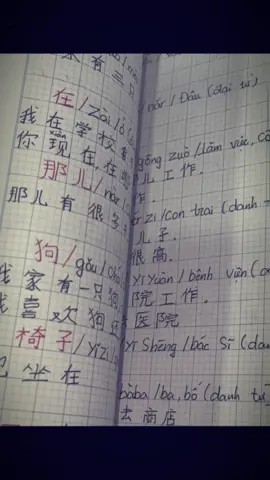 来有三只
在/zài/ở(
我在学校看
你现在在哪
xiàn
那儿/nàr/
那儿有很多
狗/gǒu/chó
我家有一只狗
我喜欢狗
椅子/yǐzi/
坐在
nár/Đâu (đại từ)
gōng zuò/làm việc, cô
儿工作.
作.
zi/con trai (danh
儿子.
很高.
Yī Yuàn/bệnh viện (
院工作.
医院
Yī Shēng/bác sĩ (da
bàba/ba, bố (danh từ
去商店